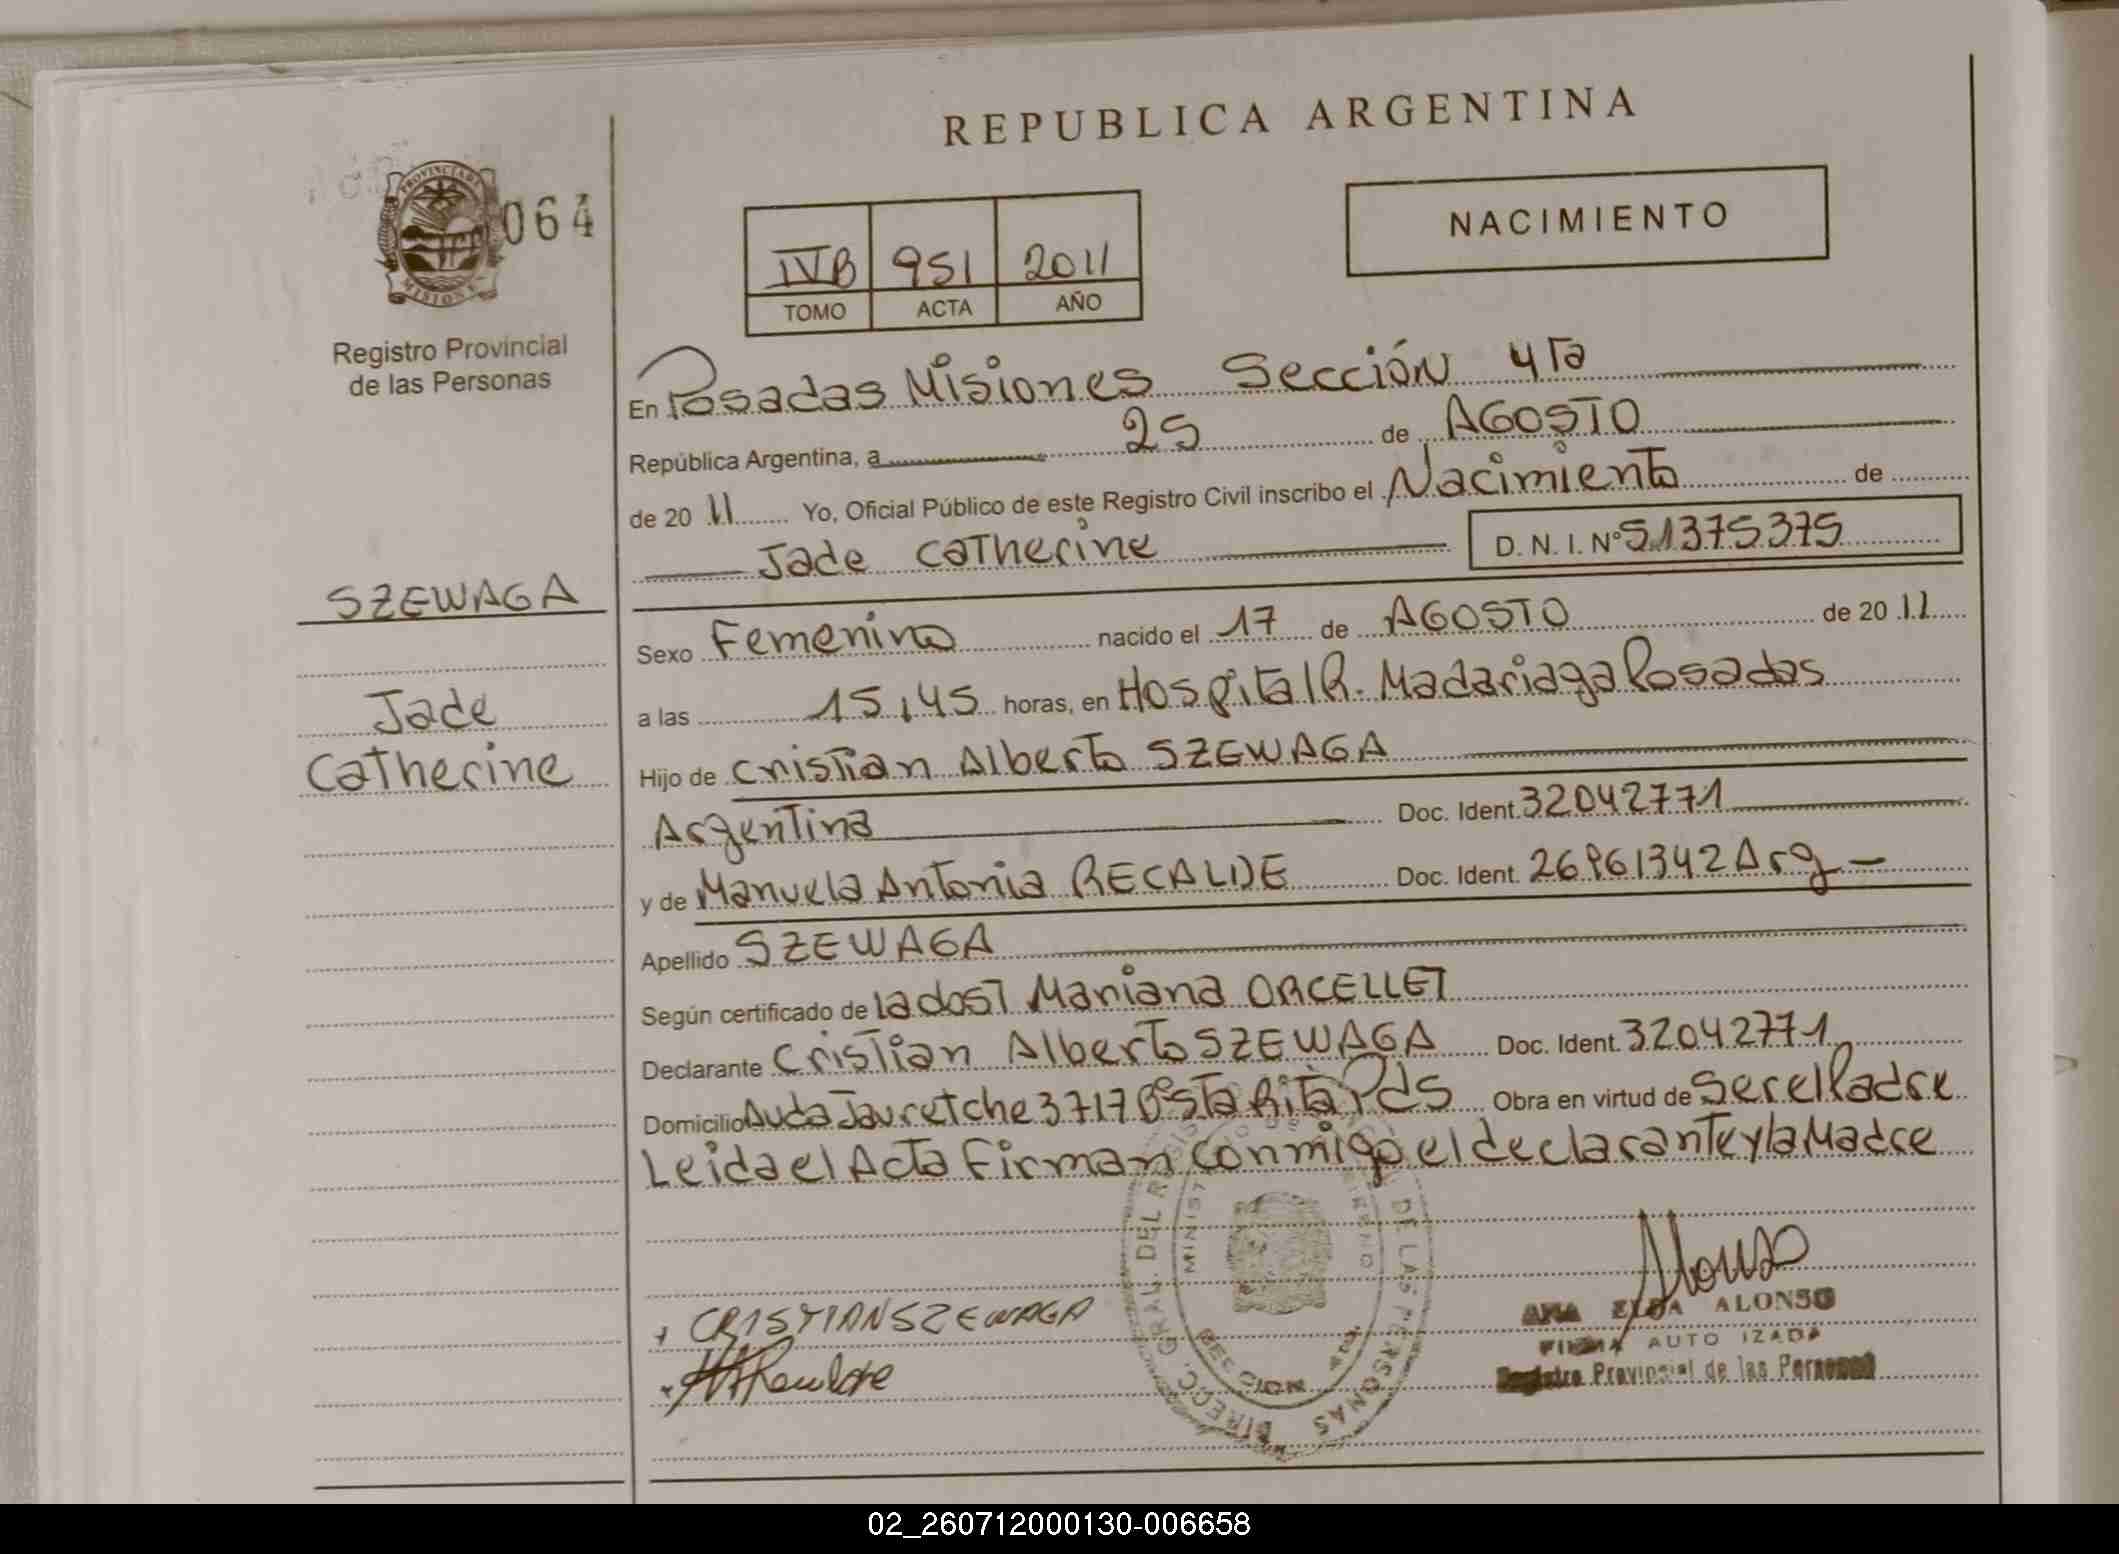 REPUBLICA ARGENTINA
PROVINCIA DE
MISIONES
064
Registro Provincial
de las Personas
IVB 951 2011
TOMO ACTA AÑO
NACIMIENTO
En Posadas Misiones Sección 4ta
República Argentina, a 25 de AGOSTO
de 2011 Yo, Oficial Público de este Registro Civil inscribo el Nacimiento de
Jade Catherine D. N. I. Nº 51375375
SZEWAGA
Jade
Catherine
Sexo Femenino nacido el 17 de AGOSTO de 2011
a las 15,45 horas, en Hospital R. Madariaga Posadas
Hijo de Cristian Alberto SZEWAGA
Argentina Doc. Ident. 32042771
y de Manuela Antonia RECALDE Doc. Ident. 26961342 Arg
Apellido SZEWAGA
Según certificado de la dost Mariana ORCELLET
Declarante Cristian Alberto SZEWAGA Doc. Ident. 32042771
Domicilio Avda Jauretche 3717 Bº Sta Rita Pds Obra en virtud de Ser el Padre
Leida el Acta Firman conmigo el declarante y la Madre
CRISTIAN SZEWAGA
Alonso
ANA ELBA ALONSO
FIRMA AUTO IZADA
Registro Provincial de las Personas
DIRECC. GRAL. DEL DE LAS PERSONAS
02_260712000130-006658